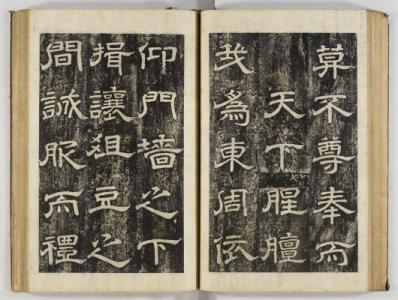 莫不尊奉而
天下腥膻
我爲東周依
仰門墻之下
揖讓俎豆之
間誠服而禮